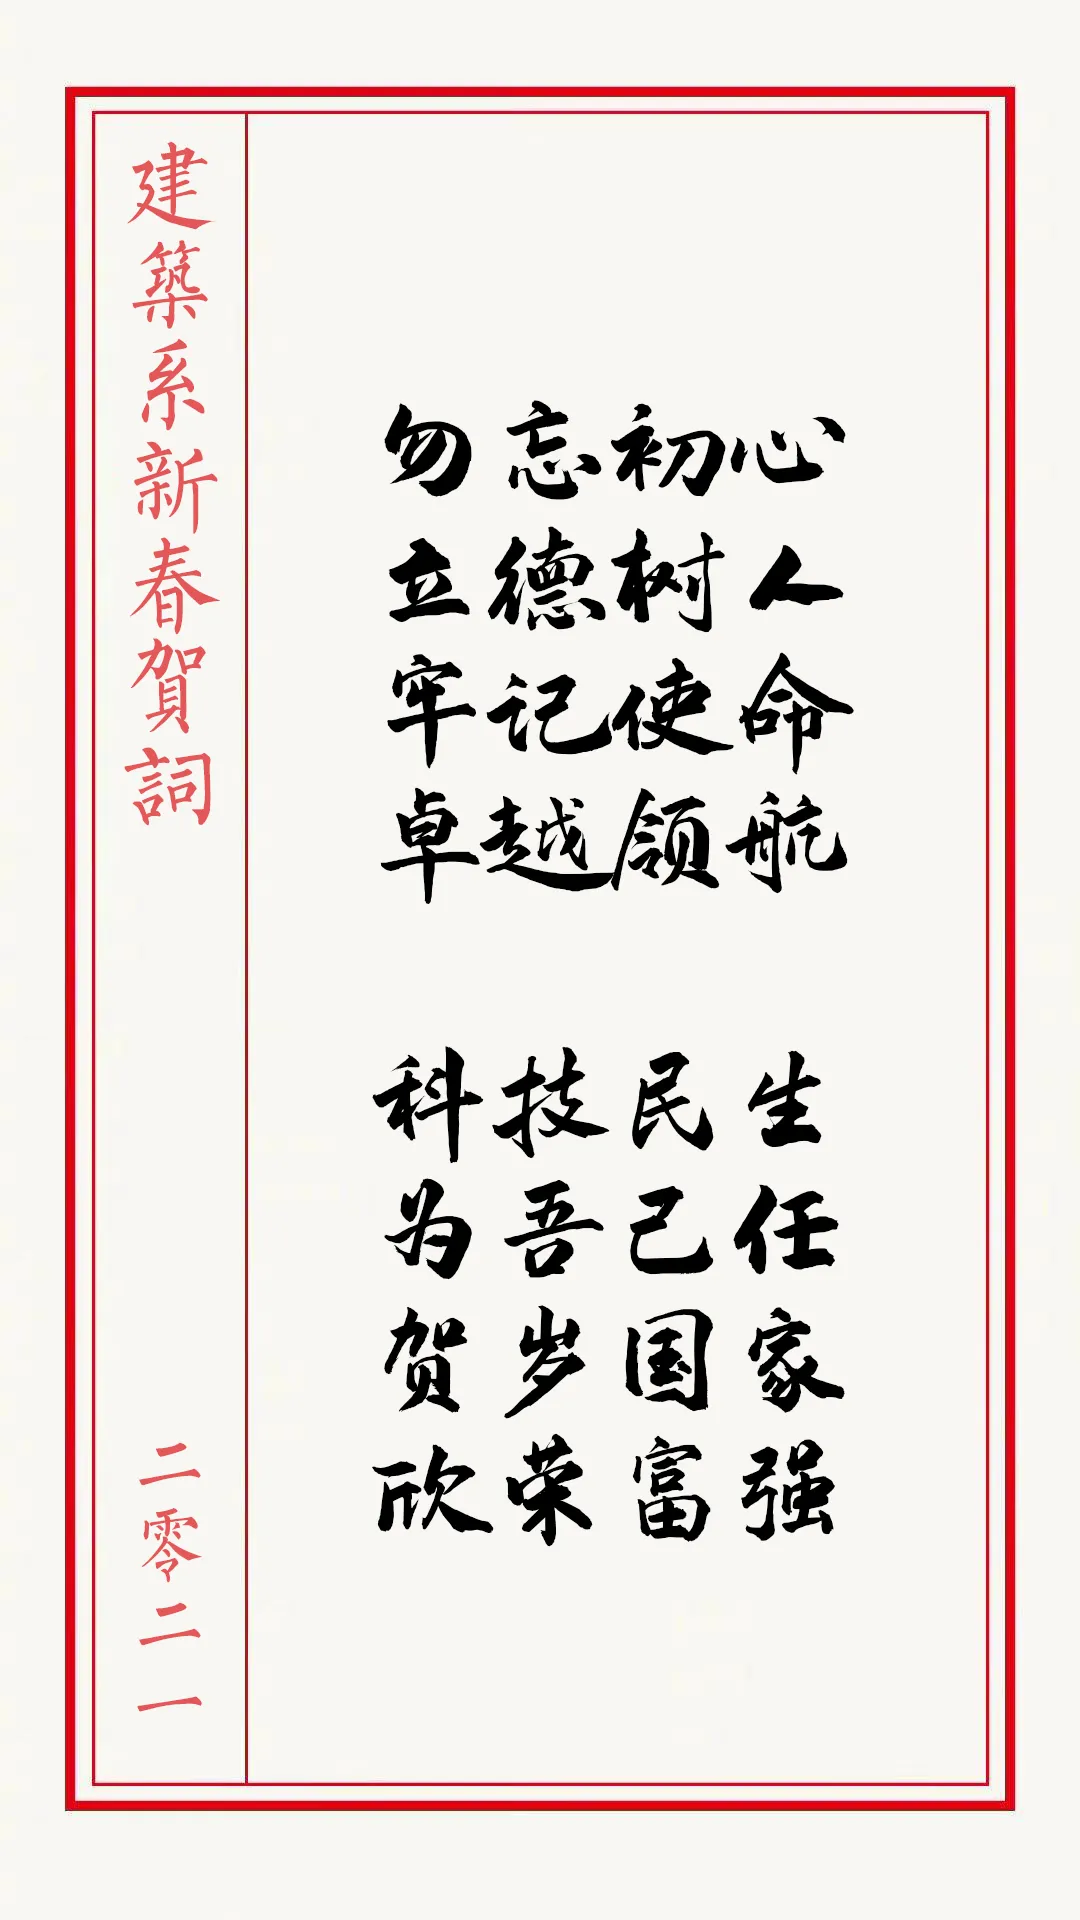 建築系新春賀詞
二零二一
勿忘初心
立德树人
牢记使命
卓越领航
科技民生
为吾己任
贺岁国家
欣荣富强